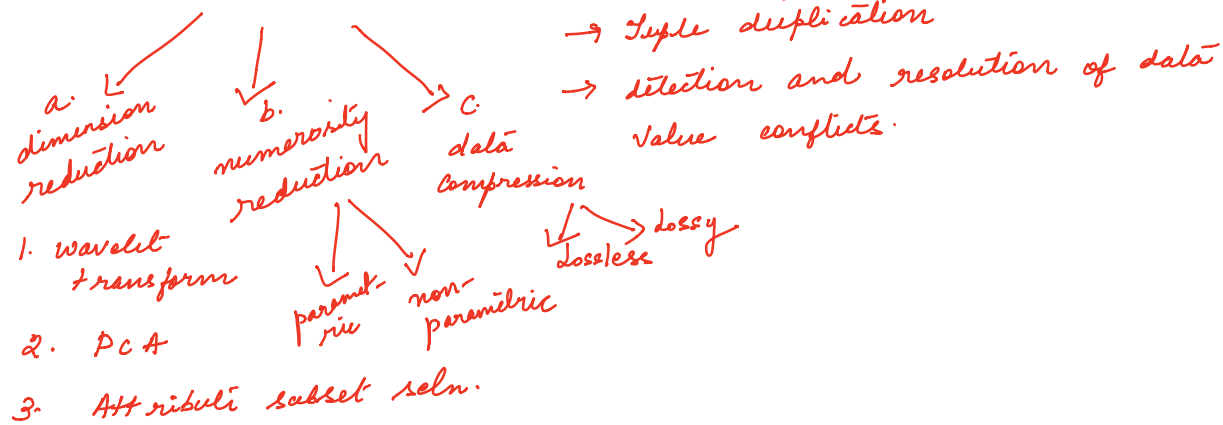 → Tuple duplication
→ detection and resolution of data
value conflicts.
a.
dimension
reduction
b.
numerosity
reduction
c.
data
compression
lossless
lossy
paramet-
ric
non-
parametric
1. wavelet
transform
2. PCA
3. Attribute subset seln.